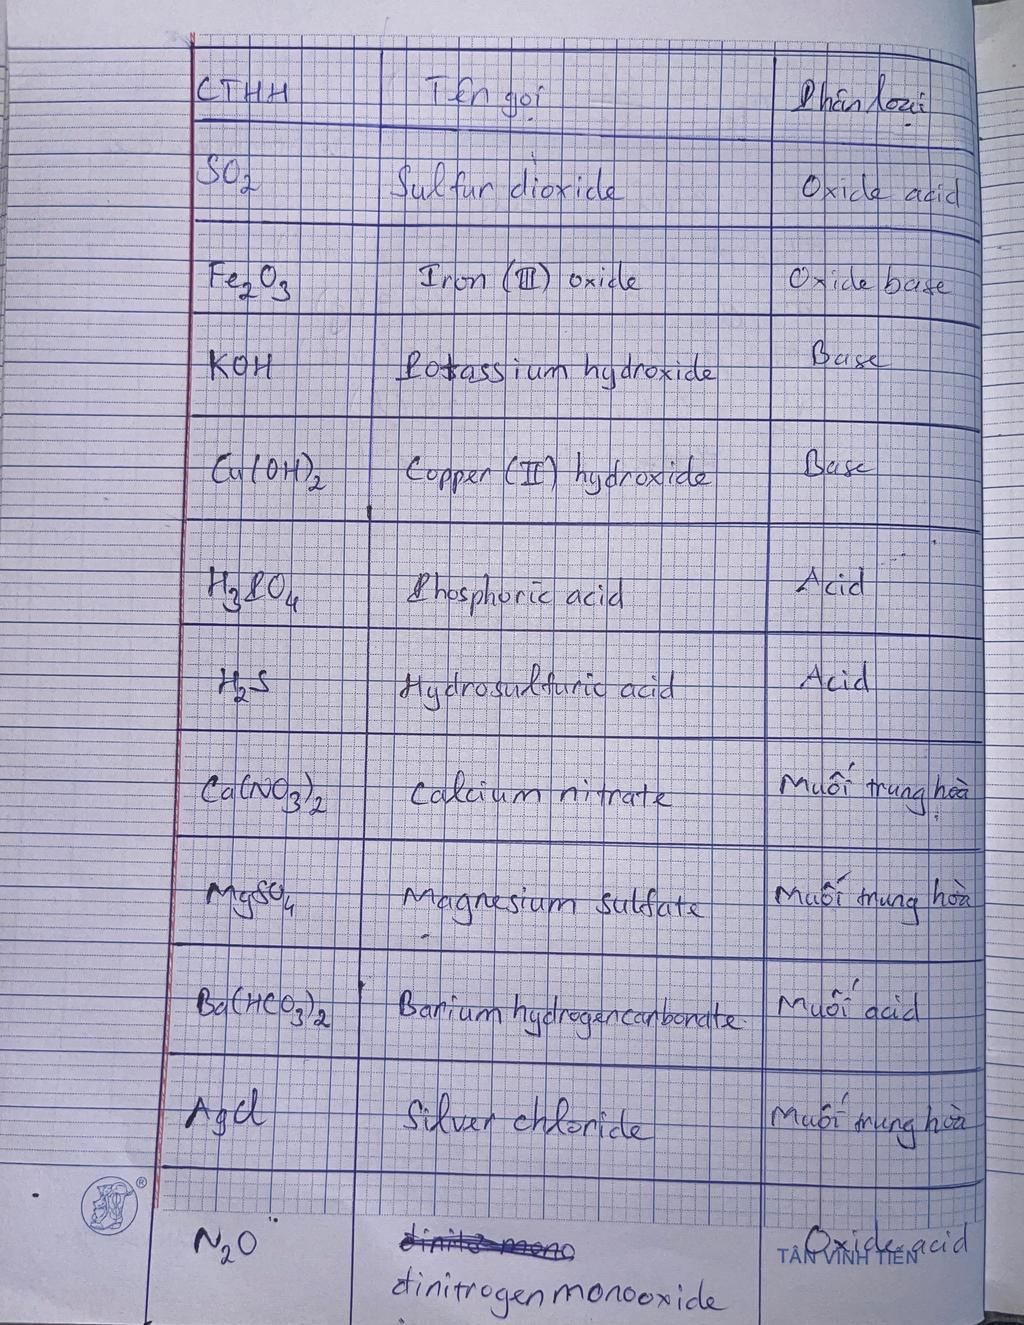 CTHH Tên gọi Phân loại
SO2 Sulfur dioxide Oxide acid
Fe2O3 Iron (III) oxide Oxide base
KOH Potassium hydroxide Base
Cu(OH)2 Copper (II) hydroxide Base
H3PO4 Phosphoric acid Acid
H2S Hydrosulfuric acid Acid
Ca(NO3)2 Calcium nitrate Muối trung hoà
MgSO4 Magnesium sulfate Muối trung hoà
Ba(HCO3)2 Barium hydrogencarbonate Muối acid
AgCl Silver chloride Muối trung hoà
®
N2O dinito mono Oxide acid
TÂN VĨNH TIẾN
dinitrogen monooxide